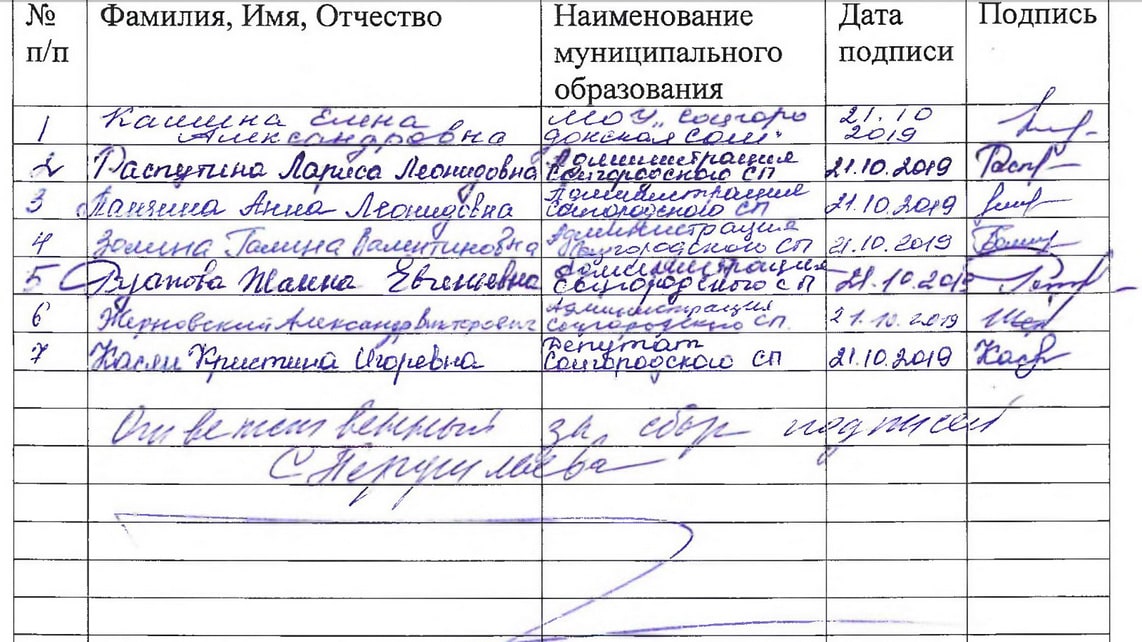 № п/п Фамилия, Имя, Отчество Наименование муниципального образования Дата подписи Подпись
1 Елена Александровна МОУ „Соцгородокская СОШ" 21.10 2019
2 Распутина Лариса Леонидовна Администрация Соцгородского СП 21.10.2019
3 Анна Леонидовна Администрация Соцгородского СП 21.10.2019
4 Золина Галина Валентиновна Администрация Соцгородского СП 21.10.2019
5 Жанна Евгеньевна Администрация Соцгородского СП 21.10.2019
6 Жерновский Александр Викторович Администрация Соцгородского СП. 21.10.2019
7 Кристина Игоревна Депутат Соцгородского СП 21.10.2019
Ответственный за сбор подписей